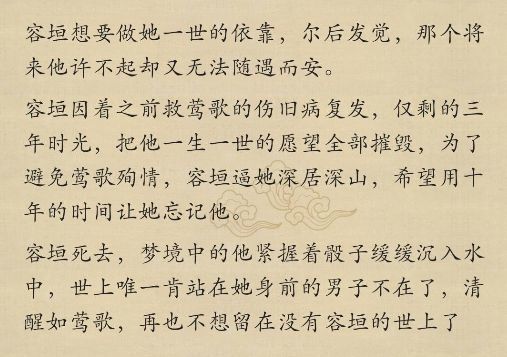 容垣想要做她一世的依靠，尔后发觉，那个将
来他许不起却又无法随遇而安。
容垣因着之前救莺歌的伤旧病复发，仅剩的三
年时光，把他一生一世的愿望全部摧毁，为了
避免莺歌殉情，容垣逼她深居深山，希望用十
年的时间让她忘记他。
容垣死去，梦境中的他紧握着骰子缓缓沉入水
中，世上唯一肯站在她身前的男子不在了，清
醒如莺歌，再也不想留在没有容垣的世上了